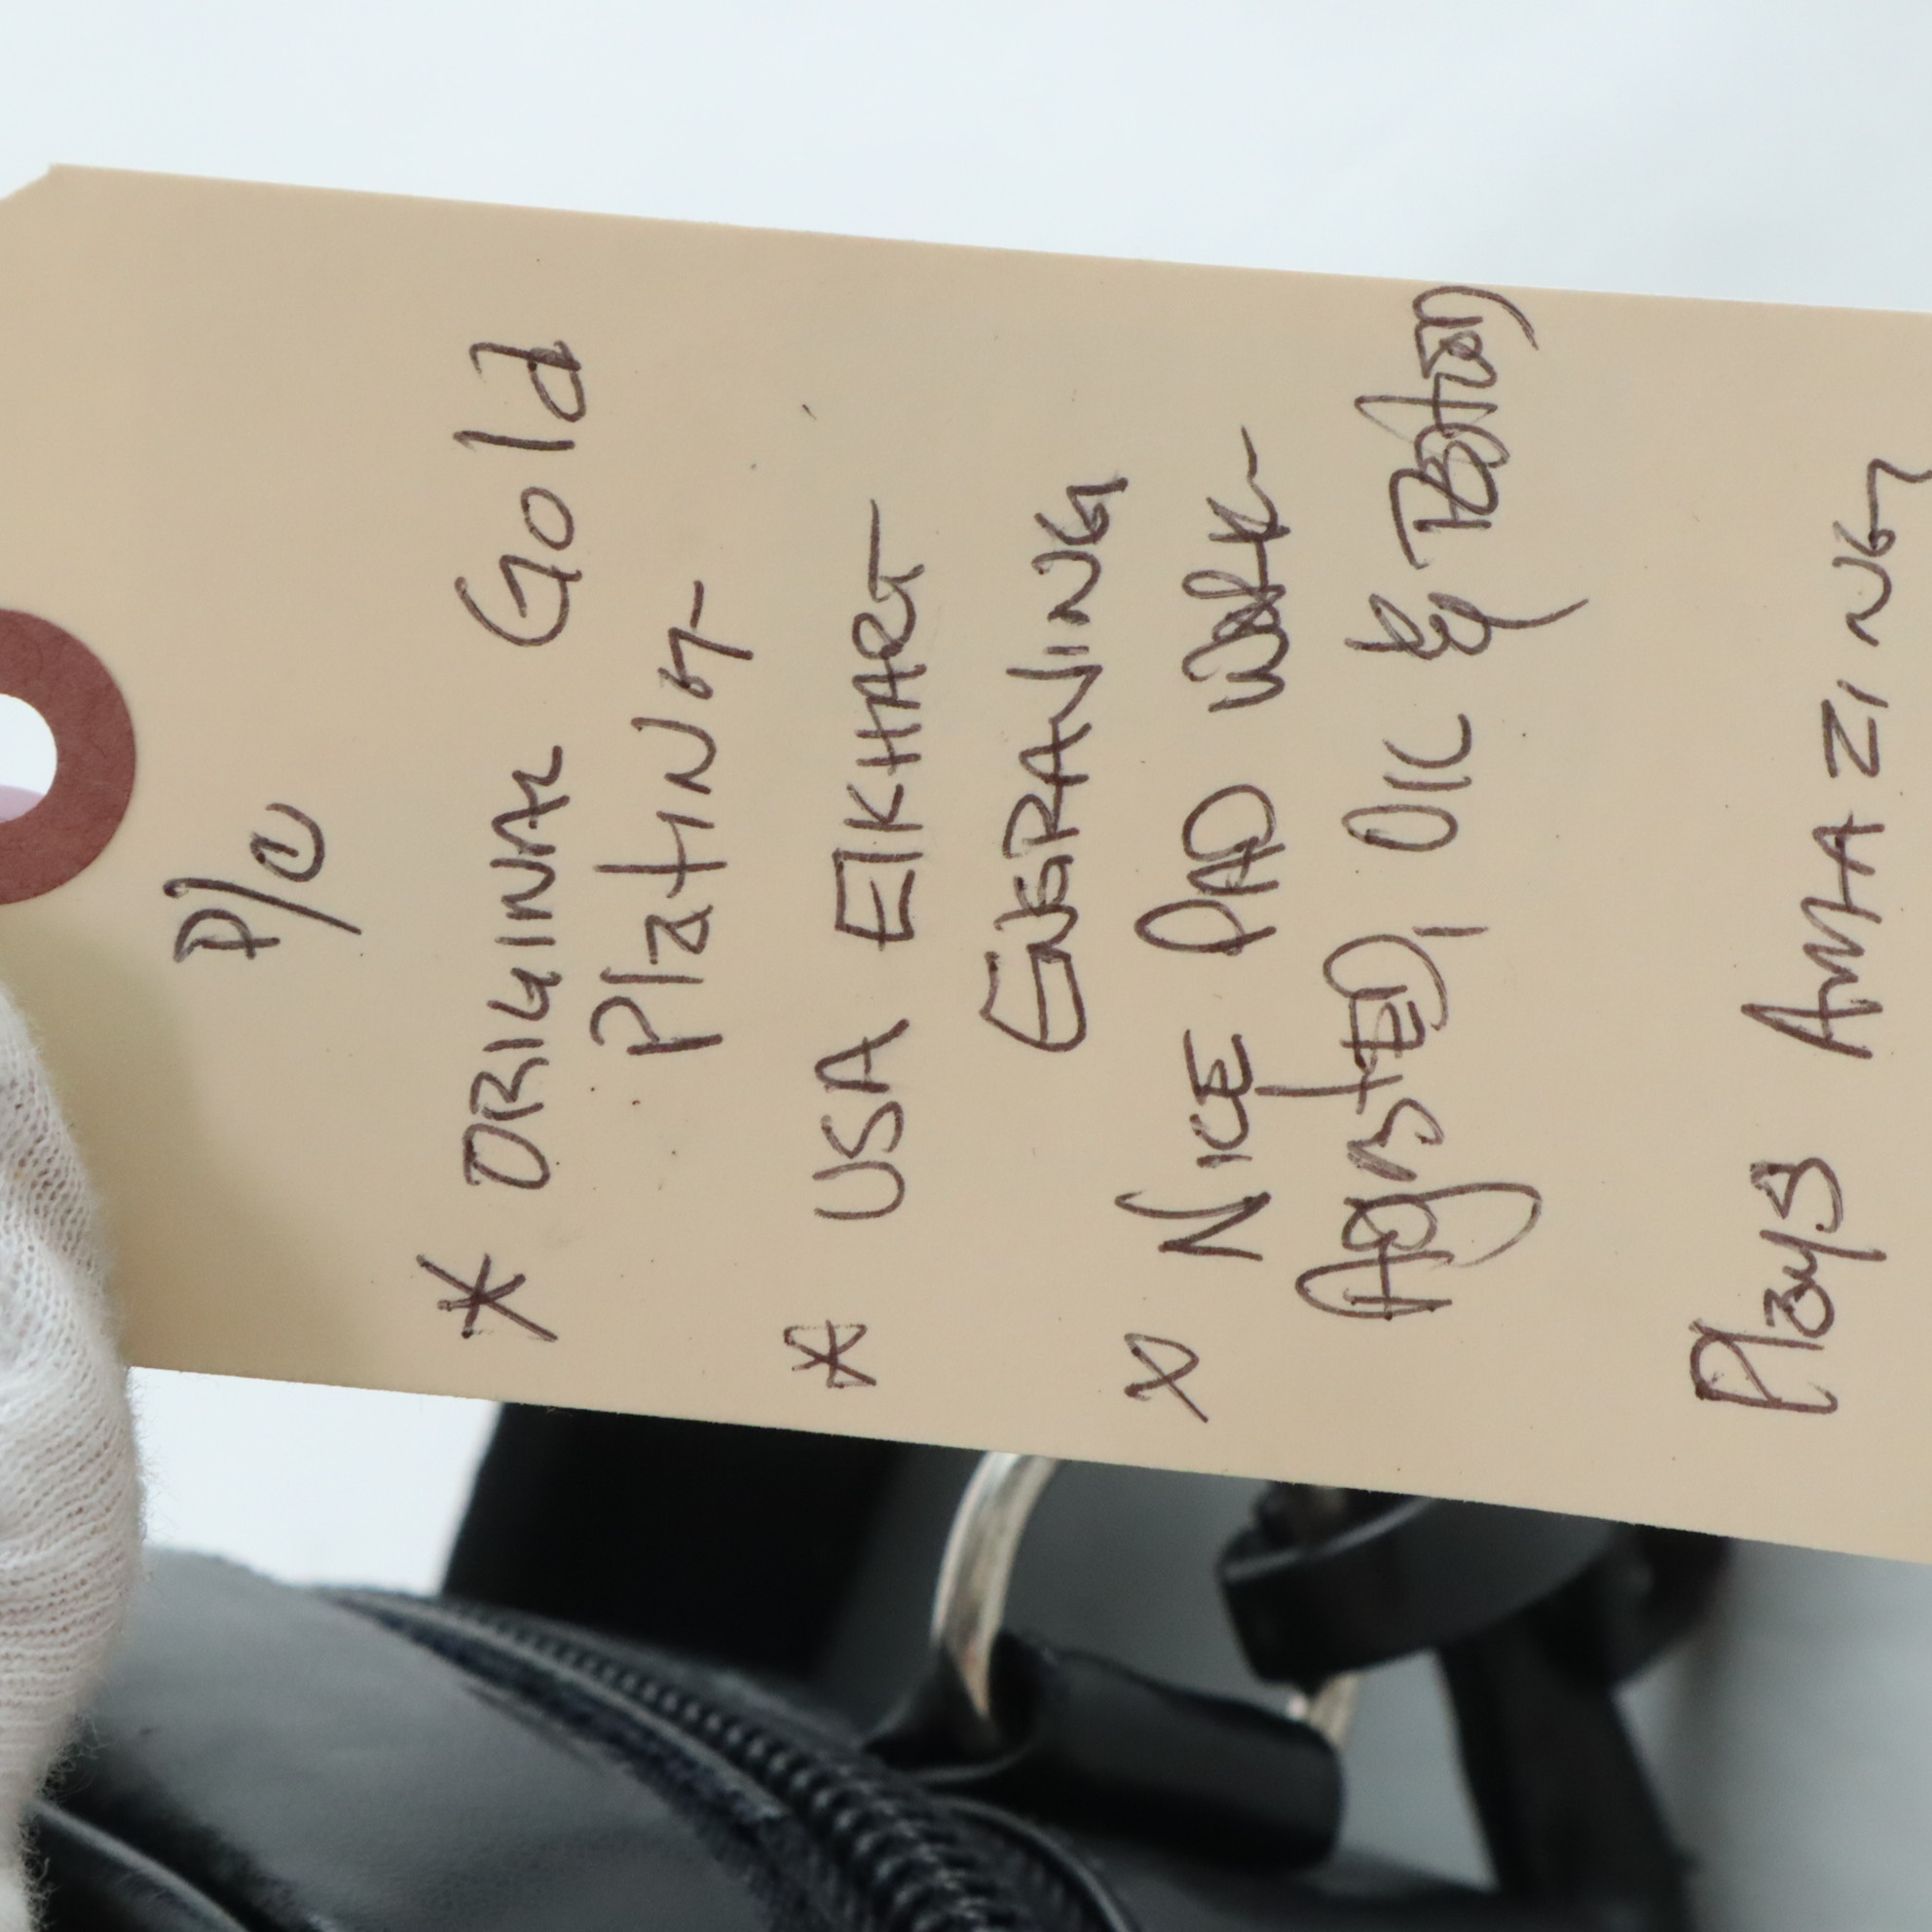 P/U
* ORIGINAL Gold
Plating
* USA ElKHART
ENGRAVING
* NICE PAD WORK
AdjustED, OIL &
Plays AMAZING